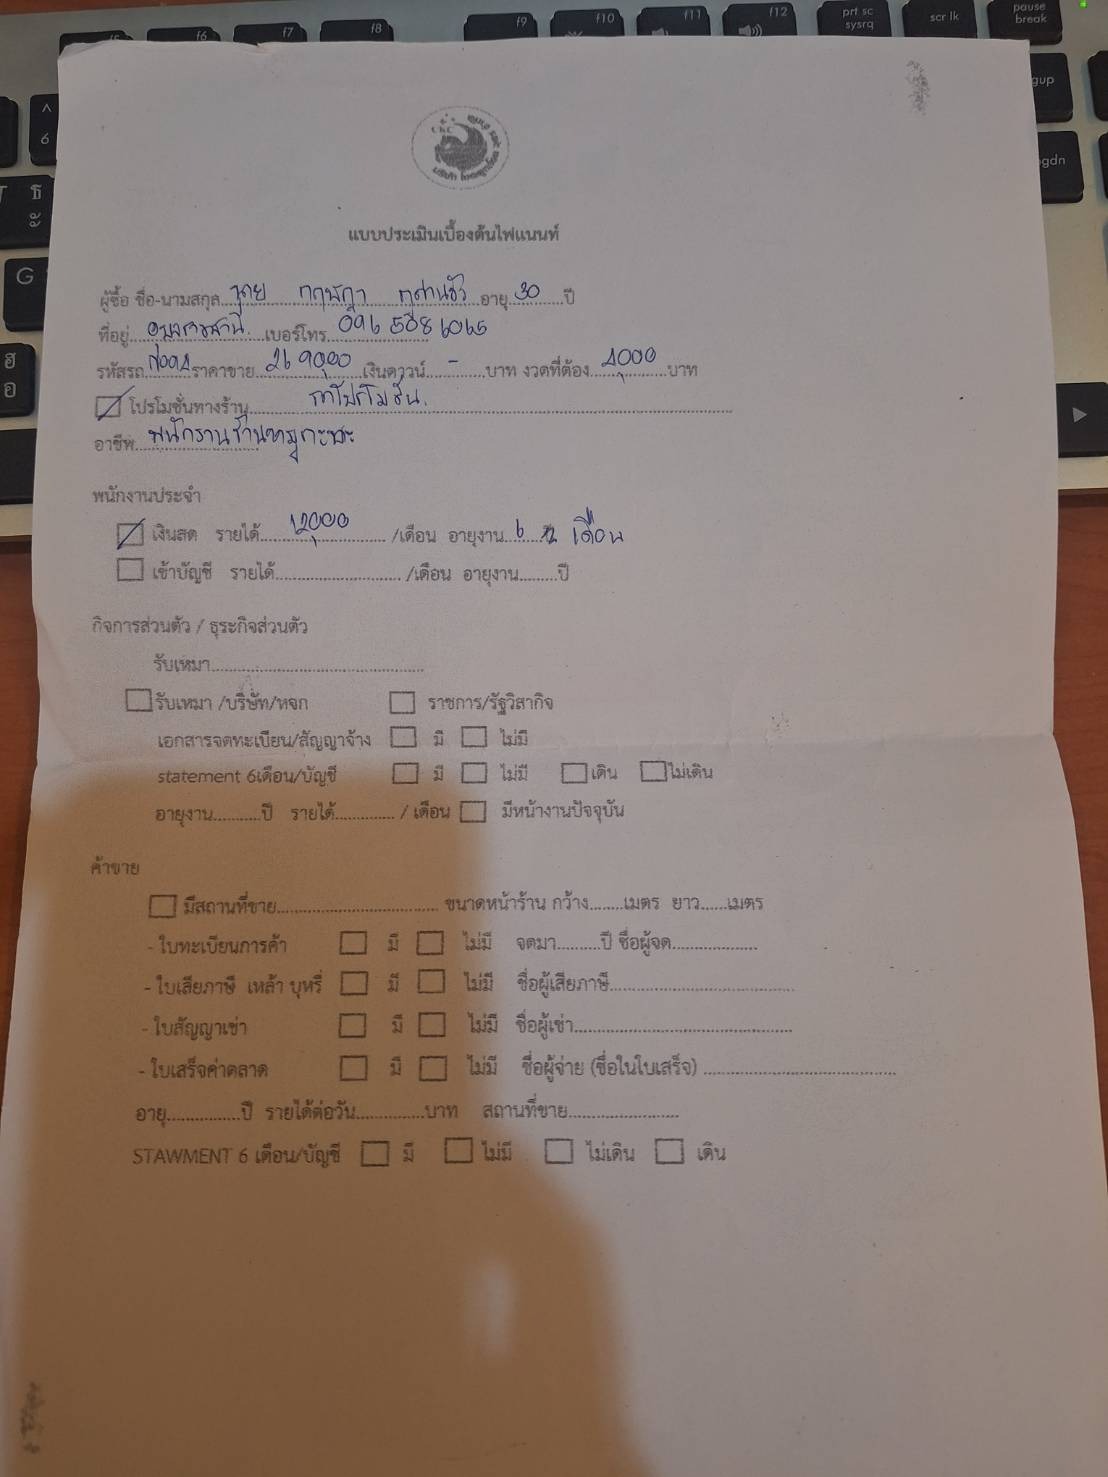 แบบประเมินเบื้องต้นไฟแนนท์
ผู้ซื้อ ชื่อ-นามสกุล นาย กฤษฎา อายุ 30 ปี
ที่อยู่ อุบลราชธานี เบอร์โทร 096 5086065
รหัสรถ ราคาขาย 269000 เงินดาวน์ - บาท งวดที่ต้อง 4,000 บาท
โปรโมชั่นทางร้าน รถโปรโมชั่น.
อาชีพ พนักงานร้านหมูกะทะ
พนักงานประจำ
เงินสด รายได้ 12,000 /เดือน อายุงาน 6 เดือน
เข้าบัญชี รายได้ /เดือน อายุงาน ปี
กิจการส่วนตัว / ธุระกิจส่วนตัว
รับเหมา
รับเหมา /บริษัท/หจก ราชการ/รัฐวิสากิจ
เอกสารจดทะเบียน/สัญญาจ้าง มี ไม่มี
statement 6เดือน/บัญชี มี ไม่มี เดิน ไม่เดิน
อายุงาน ปี รายได้ / เดือน มีหน้างานปัจจุบัน
ค้าขาย
มีสถานที่ขาย ขนาดหน้าร้าน กว้าง เมตร ยาว เมตร
- ใบทะเบียนการค้า มี ไม่มี จดมา ปี ชื่อผู้จด
- ใบเสียภาษี เหล้า บุหรี่ มี ไม่มี ชื่อผู้เสียภาษี
- ใบสัญญาเช่า มี ไม่มี ชื่อผู้เช่า
- ใบเสร็จค่าตลาด มี ไม่มี ชื่อผู้จ่าย (ชื่อในใบเสร็จ)
อายุ ปี รายได้ต่อวัน บาท สถานที่ขาย
STAWMENT 6 เดือน/บัญชี มี ไม่มี ไม่เดิน เดิน